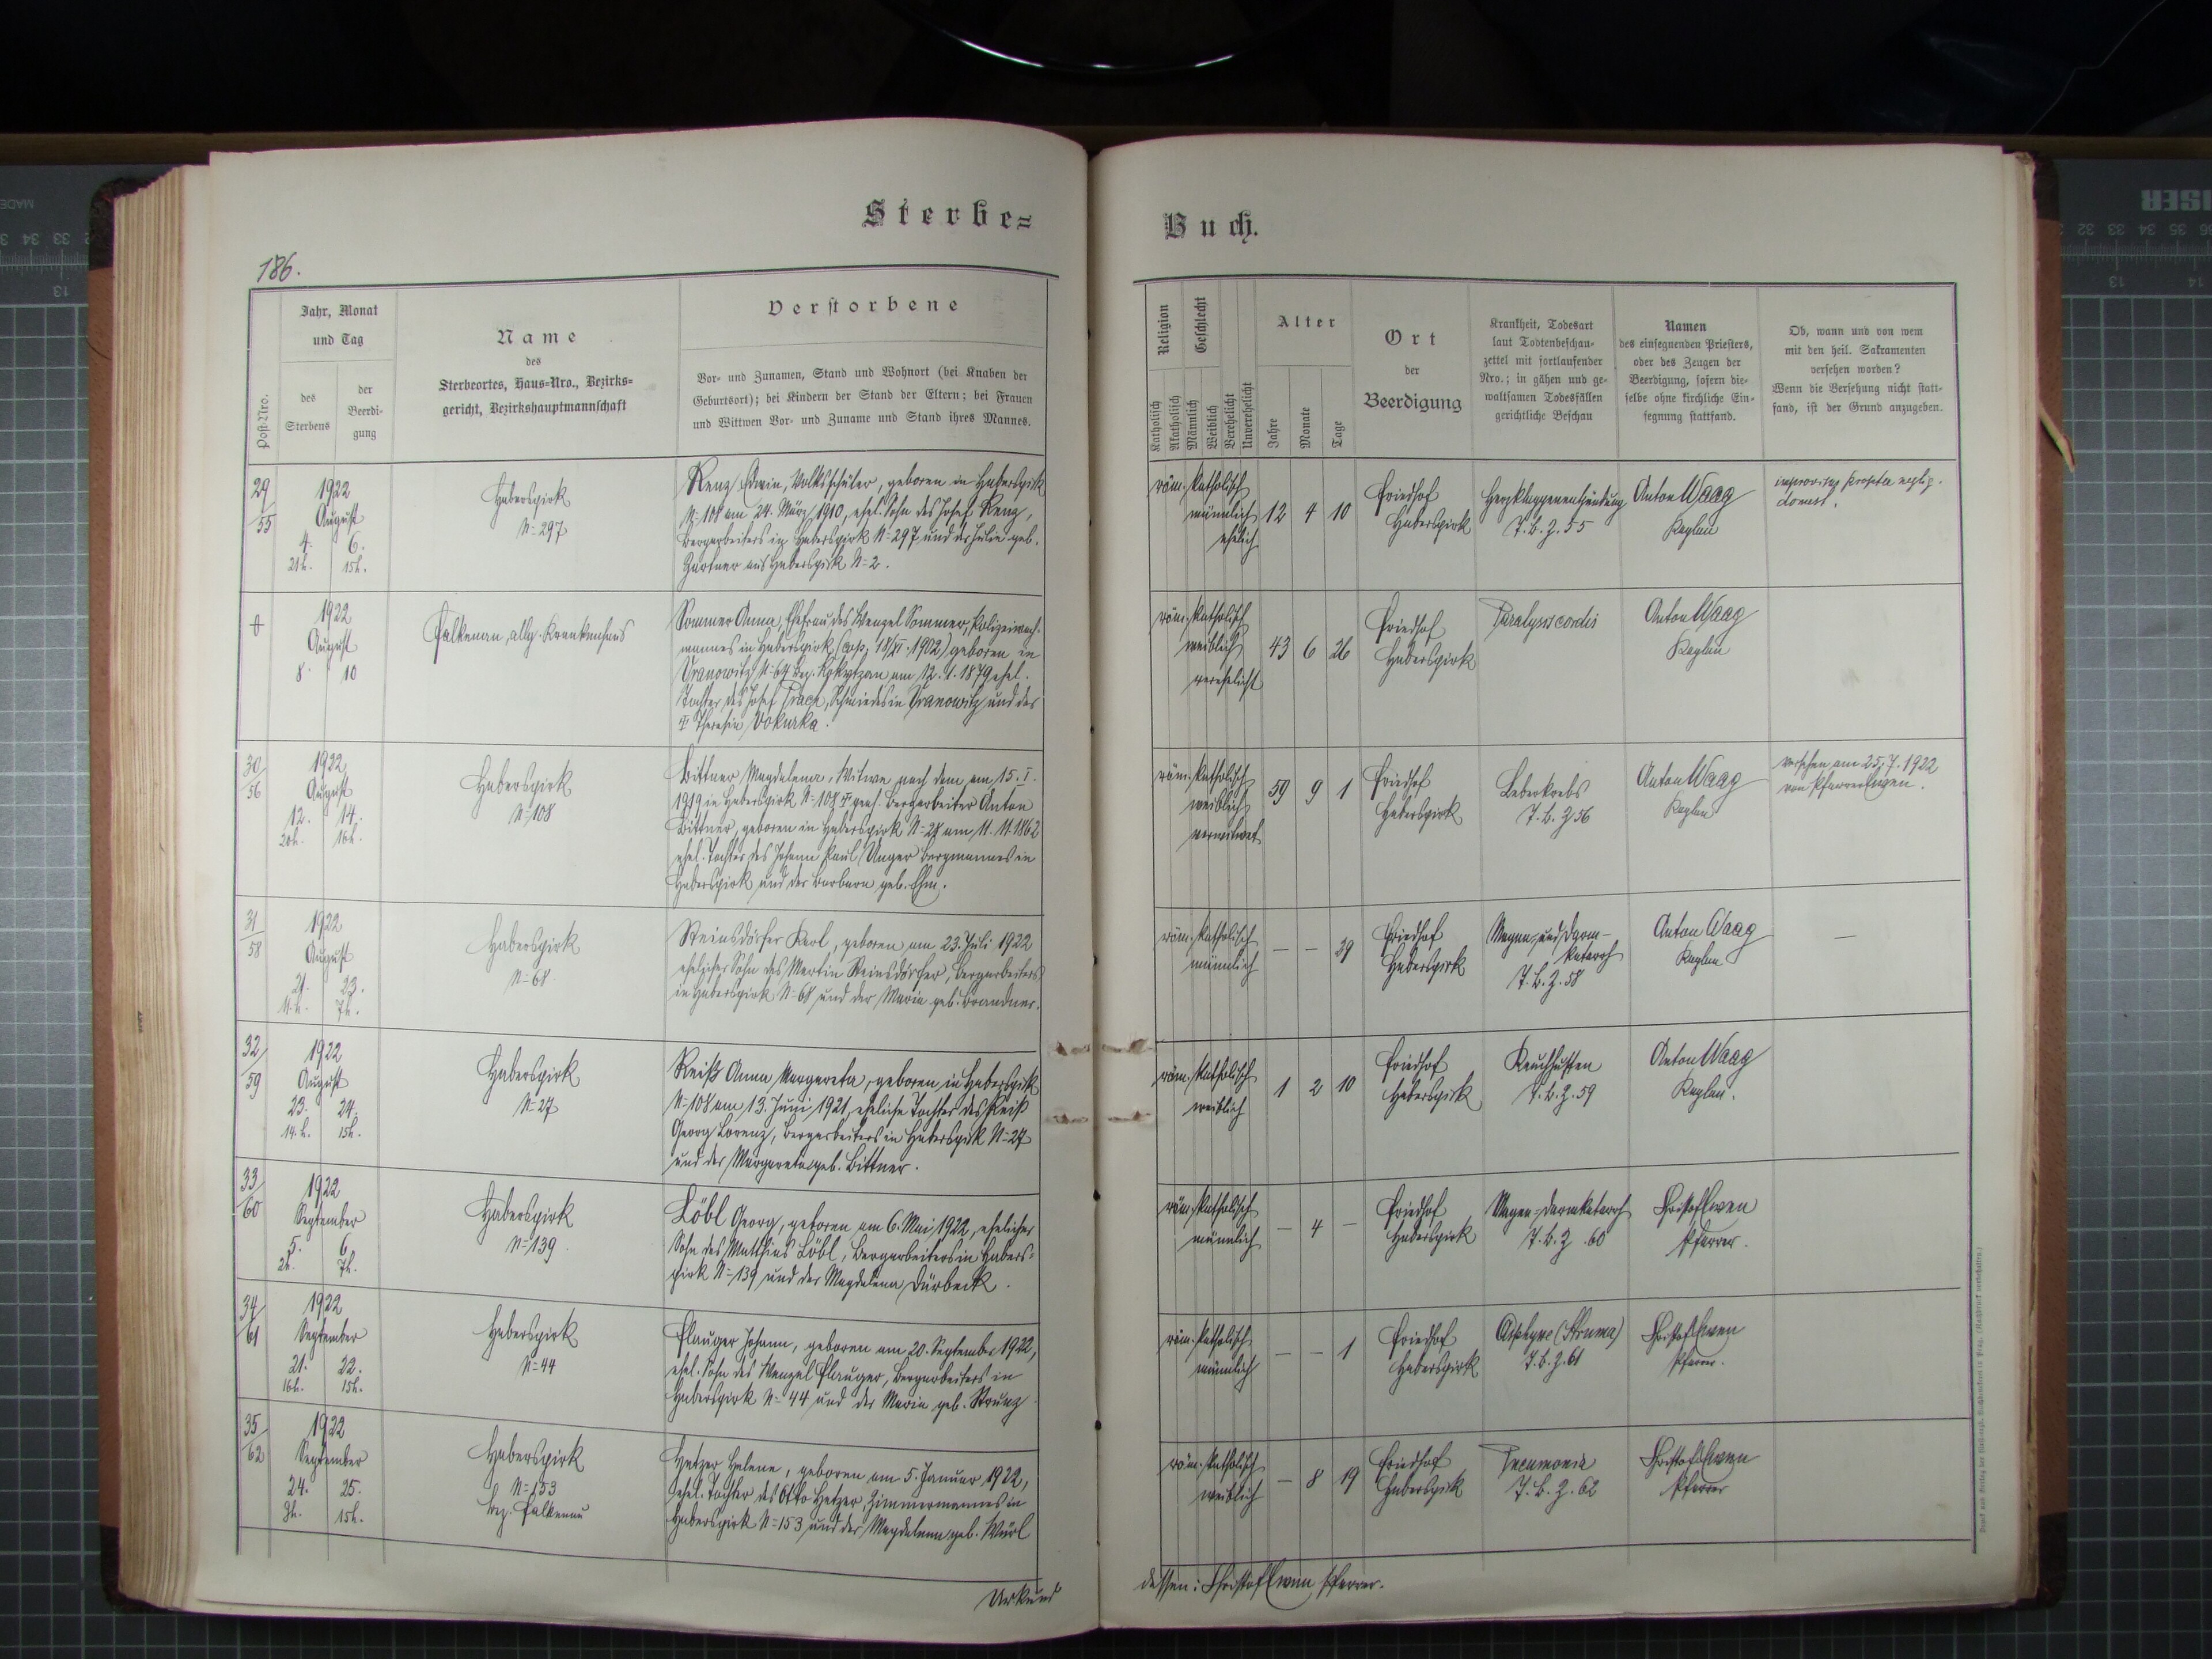 Sterbe=
186.
Jahr, Monat
und Tag
Post-Nro.
des
Sterbens
der
Beerdi-
gung
Name
des
Sterbeortes, Haus=Nro., Bezirks=
gericht, Bezirkshauptmannschaft
Verstorbene
Vor- und Zunamen, Stand und Wohnort (bei Knaben der
Geburtsort); bei Kindern der Stand der Eltern; bei Frauen
und Wittwen Vor- und Zuname und Stand ihres Mannes.
29
55
1922
August
4. 6.
21h. 15h.
Haberspirk
N=297
Renz Edwin, Volksschüler, geboren in Haberspirk
N=108 am 24. März 1910, ehel. Sohn des Josef Renz,
Bergarbeiters in Haberspirk N=297 und der Julie geb.
Gartner aus Haberspirk N=2.
†
1922
August
8. 10
Falkenau, allg. Krankenhaus
Sommer Anna, Ehefrau des Wenzel Sommer, Polizeiwach-
mannes in Haberspirk (cop. 18/XI. 1902) geboren in
Vranowitz N=64 Bez. Rokytzan am 12. 1. 1879 ehel.
Tochter des Josef, Schmiedes in Vranowitz und der
† Theresia Vokurka.
30
56
1922
August
12. 14.
20h. 16h.
Haberspirk
N=108
Bittner Magdalena, Witwe nach dem am 15. I.
1919 in Haberspirk N=108 † gew. Bergarbeiter Anton
Bittner, geboren in Haberspirk N=28 am 11. 11. 1862
ehel. Tochter des Johann Paul Unger Bergmannes in
Haberspirk und der Barbara geb. Ehm.
31
58
1922
August
21. 23.
11.h. 7h.
Haberspirk
N=68
Steinsdörfer Karl, geboren am 23. Juli 1922
ehelicher Sohn des Martin Steinsdörfer, Bergarbeiters
in Haberspirk N=68 und der Maria geb. Brandner.
32
59
1922
August
23. 24.
14.h. 15h.
Haberspirk
N=27
Reiß Anna Margareta, geboren in Haberspirk
N=108 am 13. Juni 1921, eheliche Tochter des Reiß
Georg Lorenz, Bergarbeiters in Haberspirk N=27
und der Margareta geb. Bittner.
33
60
1922
September
5. 6.
2h. 7h.
Haberspirk
N=139
Löbl Georg, geboren am 6. Mai 1922, ehelicher
Sohn des Matthias Löbl, Bergarbeiters in Habers=
pirk N=139 und der Magdalena Dürbeck.
34
61
1922
September
21. 22.
16h. 15h.
Haberspirk
N=44
Plauger Johann, geboren am 20. September 1922,
ehel. Sohn des Wenzel Plauger, Bergarbeiters in
Haberspirk N=44 und der Maria geb. Strunz
35
62
1922
September
24. 25.
3h. 15h.
Haberspirk
N=153
Bez. Falkenau
Hetzer Helene, geboren am 5. Januar 1922,
ehel. Tochter des Otto Hetzer, Zimmermannes in
Haberspirk N=153 und der Magdalena geb. Würl
Urkund
Buch.
Religion
Katholisch
Akatholisch
Geschlecht
Männlich
Weiblich
Verehelicht
Unverehelicht
Alter
Jahre
Monate
Tage
Ort
der
Beerdigung
Krankheit, Todesart
laut Todtenbeschau-
zettel mit fortlaufender
Nro.; in gähen und ge-
waltsamen Todesfällen
gerichtliche Beschau
Namen
des einsegnenden Priesters,
oder des Zeugen der
Beerdigung, sofern die-
selbe ohne kirchliche Ein-
segnung stattfand.
Ob, wann und von wem
mit den heil. Sakramenten
versehen worden?
Wenn die Versehung nicht statt-
fand, ist der Grund anzugeben.
röm. katholisch
männlich
ehelich
12 4 10
Friedhof
Haberspirk
Herzklappenentzündung
T. B. Z. 55
Anton Waag
Kaplan
improvisus propter neglig.
domest.
röm. katholisch
weiblich
verehelicht
43 6 26
Friedhof
Haberspirk
Paralysis cordis
Anton Waag
Kaplan
röm. katholisch
weiblich
verwitwet
59 9 1
Friedhof
Haberspirk
Leberkrebs
T. B. Z 56
Anton Waag
Kaplan
versehen am 25. 7. 1922
von Pfarrer
röm. katholisch
männlich
— — 29
Friedhof
Haberspirk
Magen- und Darm-
katarrh
T. B. Z. 58
Anton Waag
Kaplan
—
röm. katholisch
weiblich
1 2 10
Friedhof
Haberspirk
Keuchhusten
T. B. Z. 59
Anton Waag
Kaplan.
röm. katholisch
männlich
— 4 —
Friedhof
Haberspirk
Magen-Darmkatarrh
T. B. Z. 60
Christof
Pfarrer.
röm. katholisch
männlich
— — 1
Friedhof
Haberspirk
Asphyxe (Struma)
T. B. Z. 61
Christof
Pfarrer.
röm. katholisch
weiblich
— 8 19
Friedhof
Haberspirk
Pneumonie
T. B. Z. 62
Christof
Pfarrer
dessen: Christof Pfarrer.